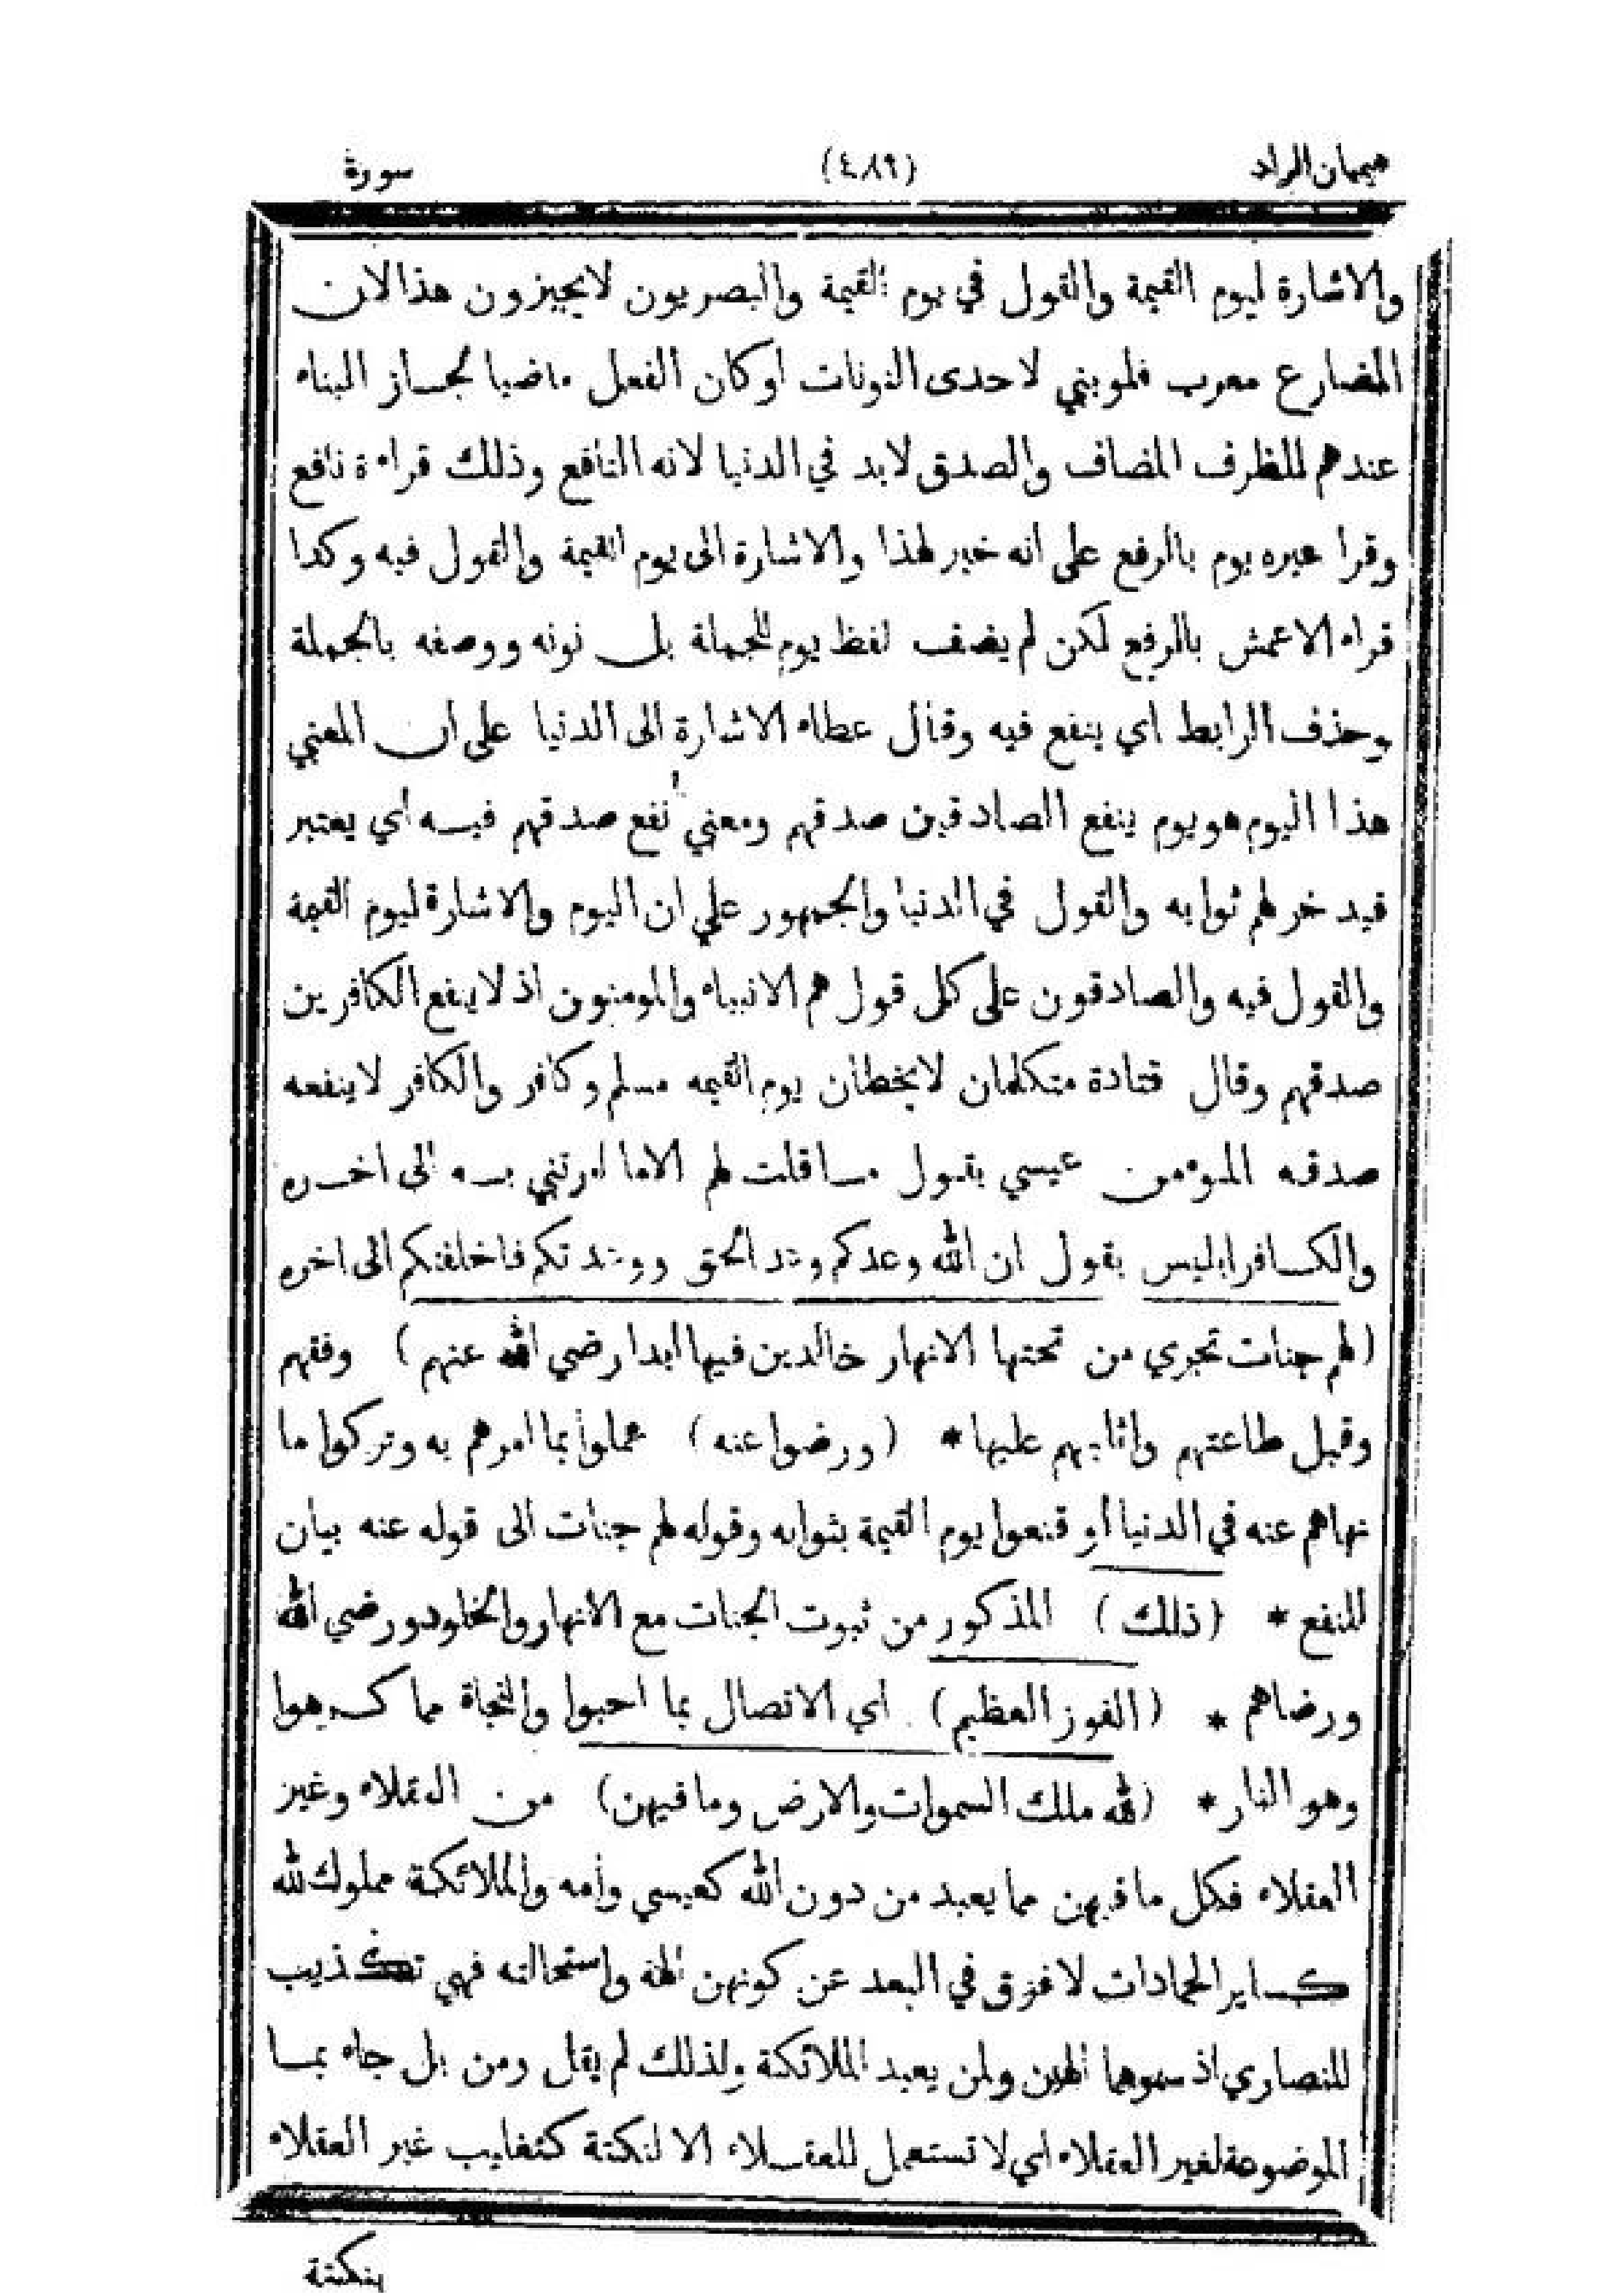 هيمان الزاد (٤٨٩) سورة
والاشارة ليوم القيمة والقول في يوم القيمة والبصريون لايجيزون هذالان
المضارع معرب فلوبني لاحدى النونات اوكان الفعل ماضيا لجاز البناء
عندهم للظرف المضاف والصدق لابد في الدنيا لانه النافع وذلك قراءة نافع
وقرا غيره يوم بالرفع على انه خبر لهذا والاشارة الى يوم القيمة والقول فيه وكدا
قراه الاعمش بالرفع لكن لم يضف لفظ يوم للجملة بل نونه ووصفه بالجملة
وحذف الرابط اي ينفع فيه وقال عطاء الاشارة الى الدنيا على ان المعني
هذا اليوم هو يوم ينفع الصادقين صدقهم ومعني نفع صدقهم فيه اي يعتبر
فيدخر لهم ثوابه والقول في الدنيا والجمهور علي ان اليوم والاشارة ليوم القيمة
والقول فيه والصادقون على كل قول هم الانبياء والمومنون اذ لاينفع الكافرين
صدقهم وقال قتادة متكلمان لايخطان يوم القيمه مسلم وكافر والكافر لاينفعه
صدقه المومن عيسي يقول ماقلت لهم الاما امرتني به الى اخره
والكافرابليس يقول ان الله وعدكم وعد الحق ووعدتكم فاخلفتكم الى اخره
(لهم جنات تجري من تحتها الانهار خالدين فيها ابدا رضي الله عنهم) وفقهم
وقبل طاعتهم واثابهم عليها * (ورضوا عنه) عملوا بما امرهم به وتركوا ما
نهاهم عنه في الدنيا او قنعوا يوم القيمة بثوابه وقوله لهم جنات الى قوله عنه بيان
للنفع * (ذلك) المذكور من ثبوت الجنات مع الانهار والخلود ورضي الله
ورضاهم * (الفوز العظيم) اي الاتصال بما احبوا والنجاة مما كرهوا
وهو النار * (لله ملك السموات والارض وما فيهن) من العقلاء وغير
العقلاء فكل ما فيهن مما يعبد من دون الله كعيسي وامه والملائكة مملوك لله
كساير الجمادات لا فرق في البعد عن كونهن الهة واستحالته فهي تكذيب
للنصاري اذ سموهما الهين ولمن يعبد الملائكة ولذلك لم يقل ومن بل جاء بما
الموضوعة لغير العقلاء اي لا تستعمل للعقلاء الا لنكتة كتغليب غير العقلاء
بنكتة